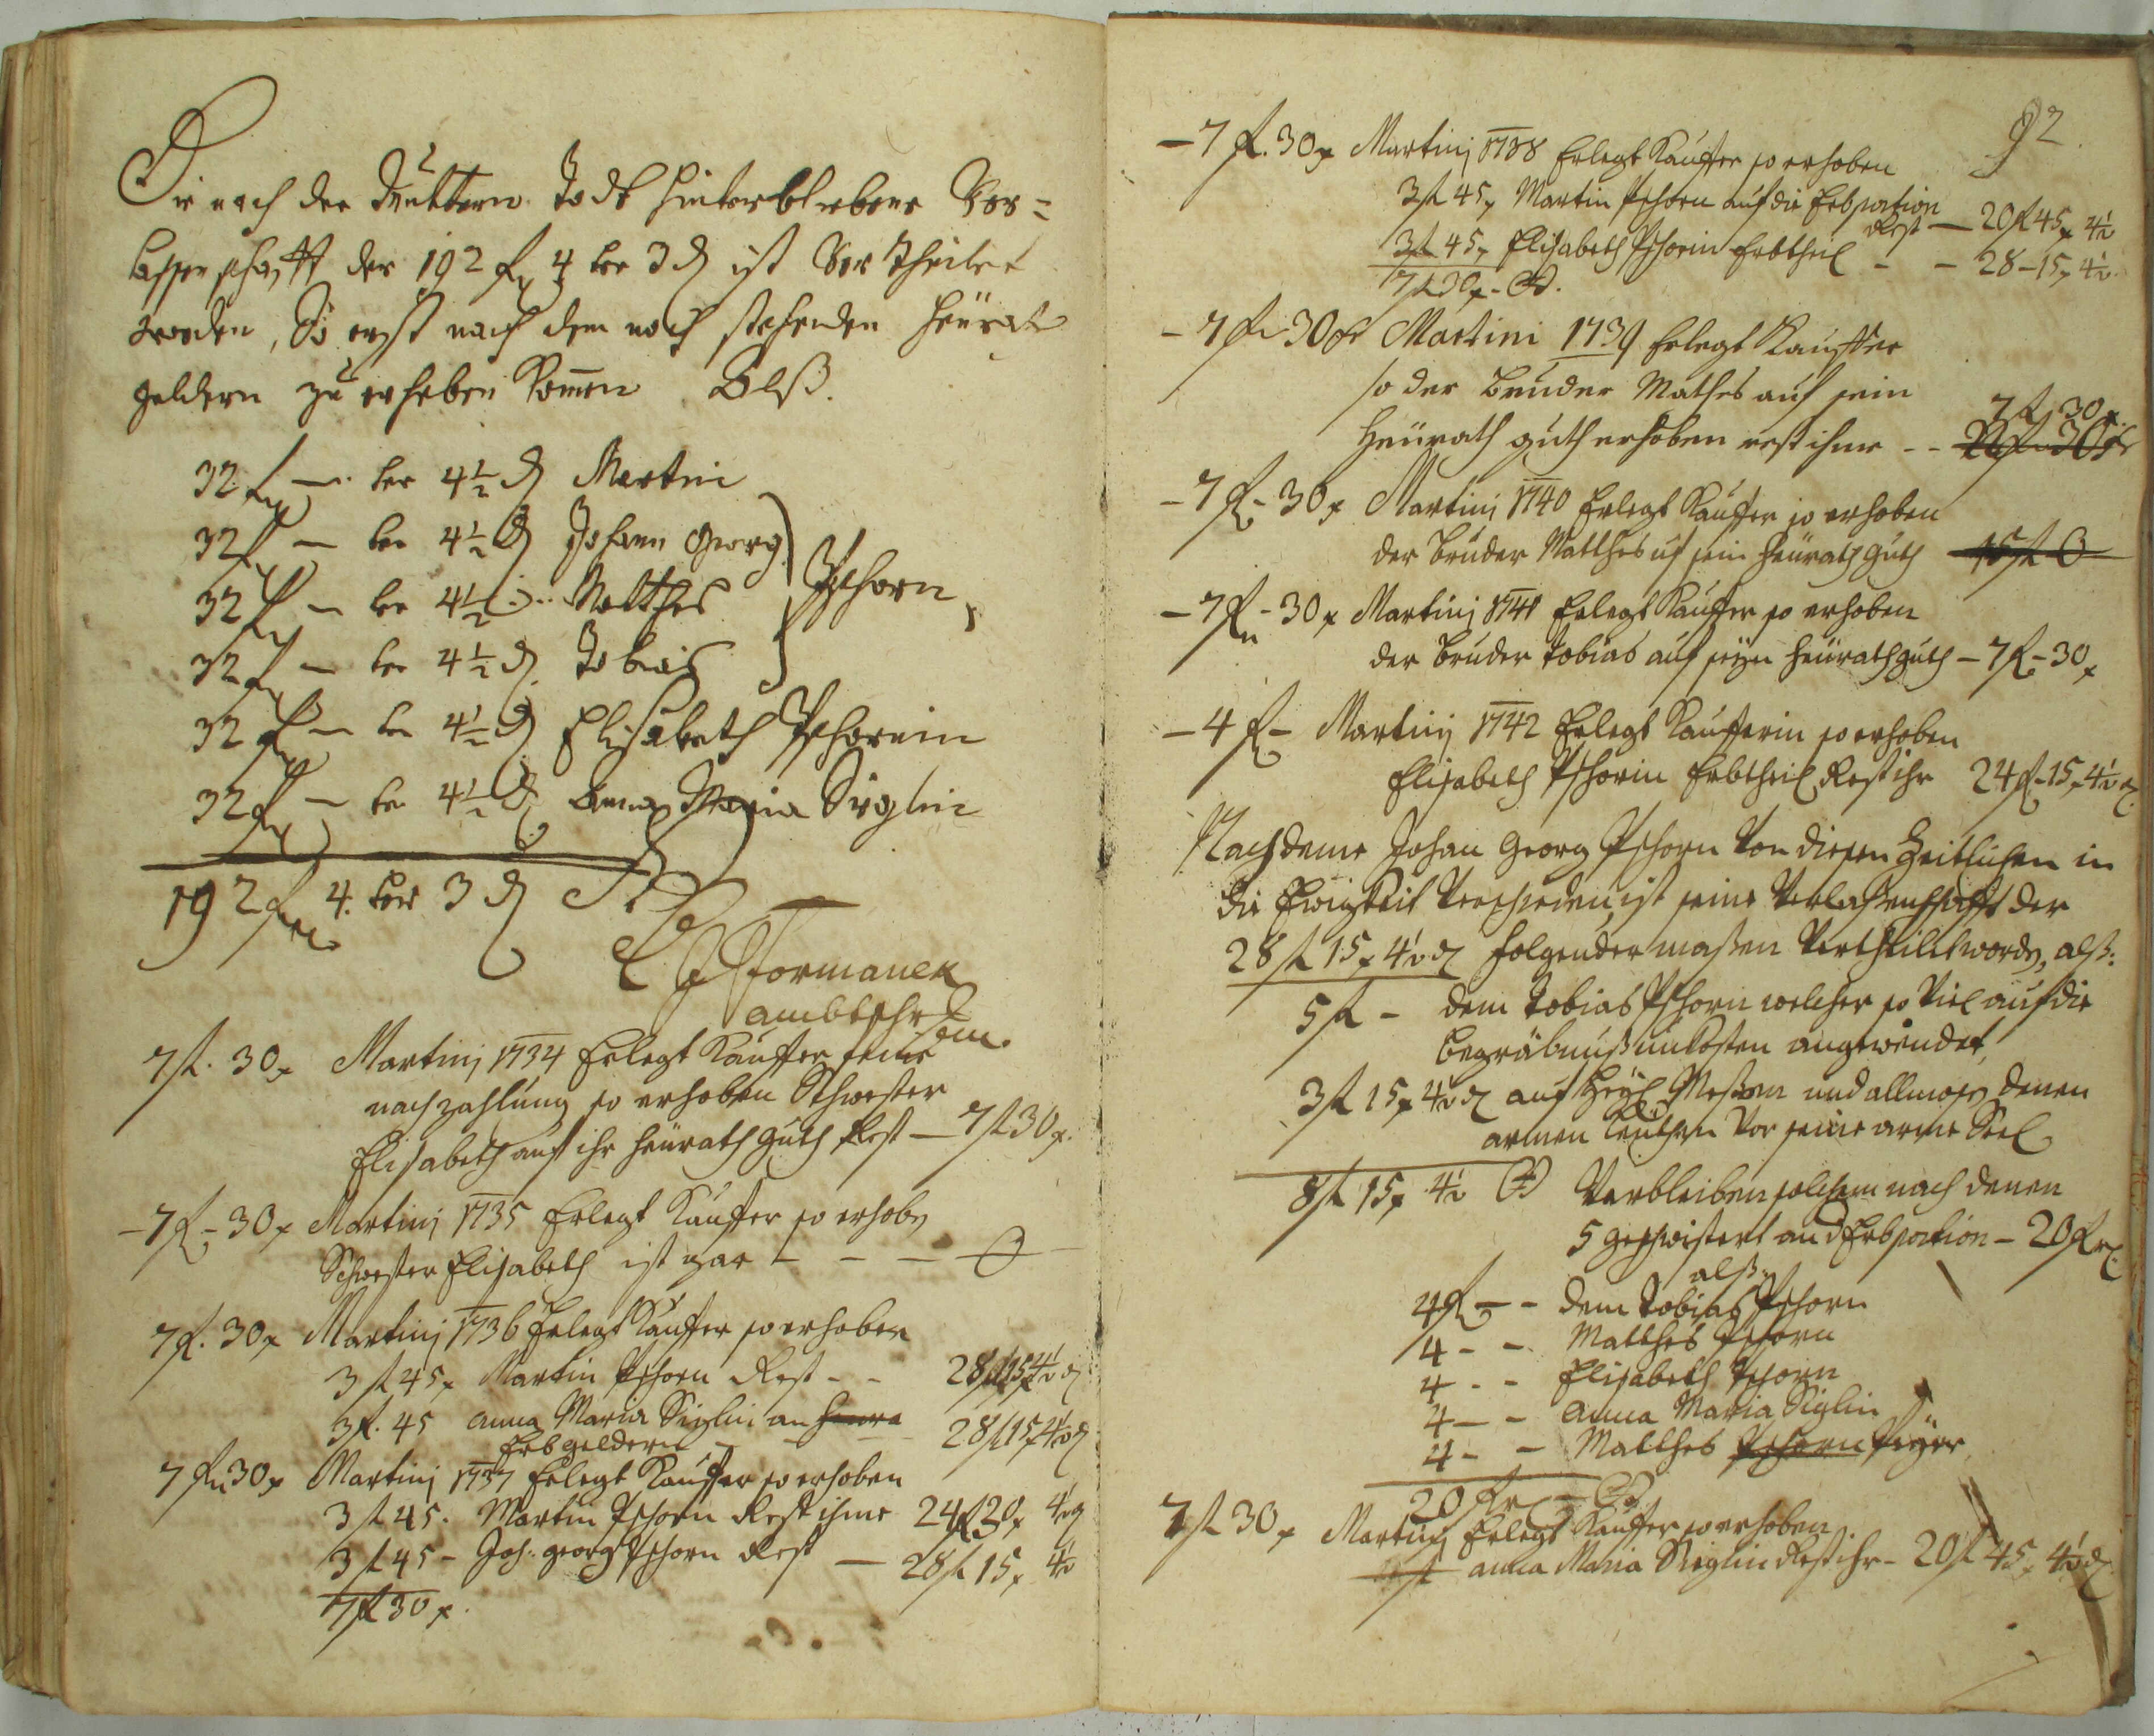 Die nach der Muttern Todt hinterbliebene Ver=
lassenschafft der 192 fl 4 kr 3 d ist Vertheilet
worden, So erst nach dem noch stehenden Heürat
geldern zu erheben kommen Alß.
32 fl — kr 4½ d Martin
32 fl — kr 4½ d Johann Georg
32 fl — kr 4½ Matthes
Pschorn
32 fl — kr 4½ d Tobias
32 fl — kr 4½ d Elisabeth Pschornin
32 fl — kr 4½ d Anna Maria Siglin
192 fl 4 kr 3 d
Formanek
ambtschr
7 fl. 30 x Martinj 1734 Erlegt Kauffer seine
nachzahlung so erhoben Schwester
Elisabeth auf ihr heürath guth Rest — 7 fl 30 x.
— 7 fl - 30 x Martinj 1735 Erlegt Kauffer so erhobn
Schwester Elisabeth ist gar — — — 0
7 fl. 30 x Martinj 1736 Erlegt Kauffer so erhoben
3 fl 45 x Martin Pschorn Rest - - 28 fl 15 x 4½ d
3 fl. 45 anna Maria Siglin an
Erbgeldern — — 28 fl 15 x 4½ d
7 fl 30 x Martinj 1737 Erlegt Kauffer so erhoben
3 fl 45. Martin Pschorn Rest ihme 24 fl 30 x 4½ d
3 fl 45 - Joh: georg Pschorn Rest — 28 fl 15 x 4½
7 fl 30 x.
92.
— 7 fl. 30 x Martinj 1738 Erlegt Kauffer so erhoben
3 fl 45 x Martin Pschorn auf die Erbportion
Rest — 20 fl 45 x 4½
3 fl 45 x Elisabeth Pschorin Erbtheil - - 28 - 15 x 4½
7 fl 30 x
- 7 fl 30 kr Martini 1739 Erlegt Kauffer
so der Bruder Mathes auf sein
7 fl 30 x
Heürath guth erhoben rest ihme - - 22 fl 30 kr
- 7 fl - 30 x Martinj 1740 Erlegt Kauffer so erhoben
der Bruder Matthes uf sein heürath guth 15 fl 0
- 7 fl - 30 x Martinj 1741 Erlegt Kauffer so erhoben
der Bruder Tobias auf seyn heürathguth — 7 fl - 30 x
- 4 fl - Martinj 1742 Erlegt Kaufferin so erhoben
Elisabeth Pschorin Erbtheil Rest ihr 24 fl - 15 x 4½ d
Nachdeme Johan Georg Pschorn Von diesen Zeitlichen in
die Ewigkeit Verschieden, ist seine Verlaßenschafft der
28 fl 15 x 4½ d folgender maßen Vertheilet wordn, alß:
5 fl - dem Tobias Pschorn welcher so Viel auf die
Begräbnuß unkosten angewendet,
3 fl 15 x 4½ d auf Heyl. Meßen und allmosn denen
armen leuthen Vor seine arme Seel
8 fl 15 x 4½ Verbleiben solchem nach denen
5 geschwistert and Erbportion — 20 fl
alß:
4 fl — - dem Tobias Pschorn
4 - - Matthes Pschorn
4 - - Elisabeth Pschorn
4 — - Anna Maria Siglin
4 - - Matthes Pschorn
20 fl
7 fl 30 x Martinj Erlegt Kauffer so erhoben
anna Maria Siglin Rest ihr - 20 fl 45 x 4½ d